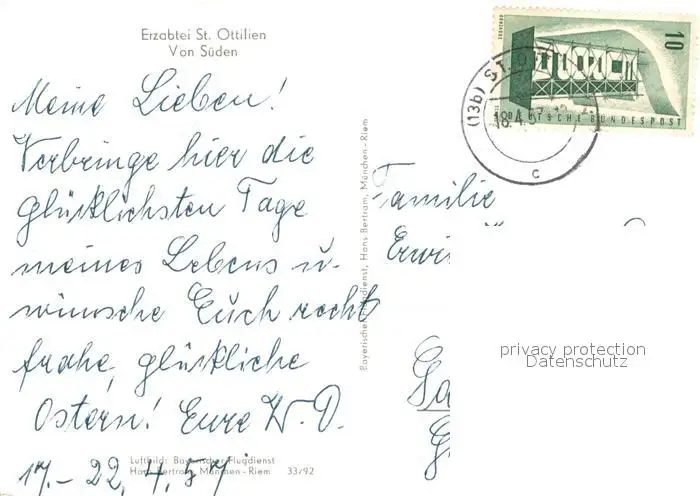 Erzabtei St. Ottilien
Von Süden
Meine Lieben!
Verbringe hier die
glücklichsten Tage
meines Lebens u.
wünsche Euch recht
frohe, glückliche
Ostern! Eure W. D.
17.- 22. 4. 57
Luftbild: Bayerischer Flugdienst
Hans Bertram, München - Riem 33/92
Bayerischer Flugdienst, Hans Bertram, München - Riem
10
DEUTSCHE BUNDESPOST
(13b) ST.
18.4.57
c
Familie
Erwi
privacy protection
Datenschutz